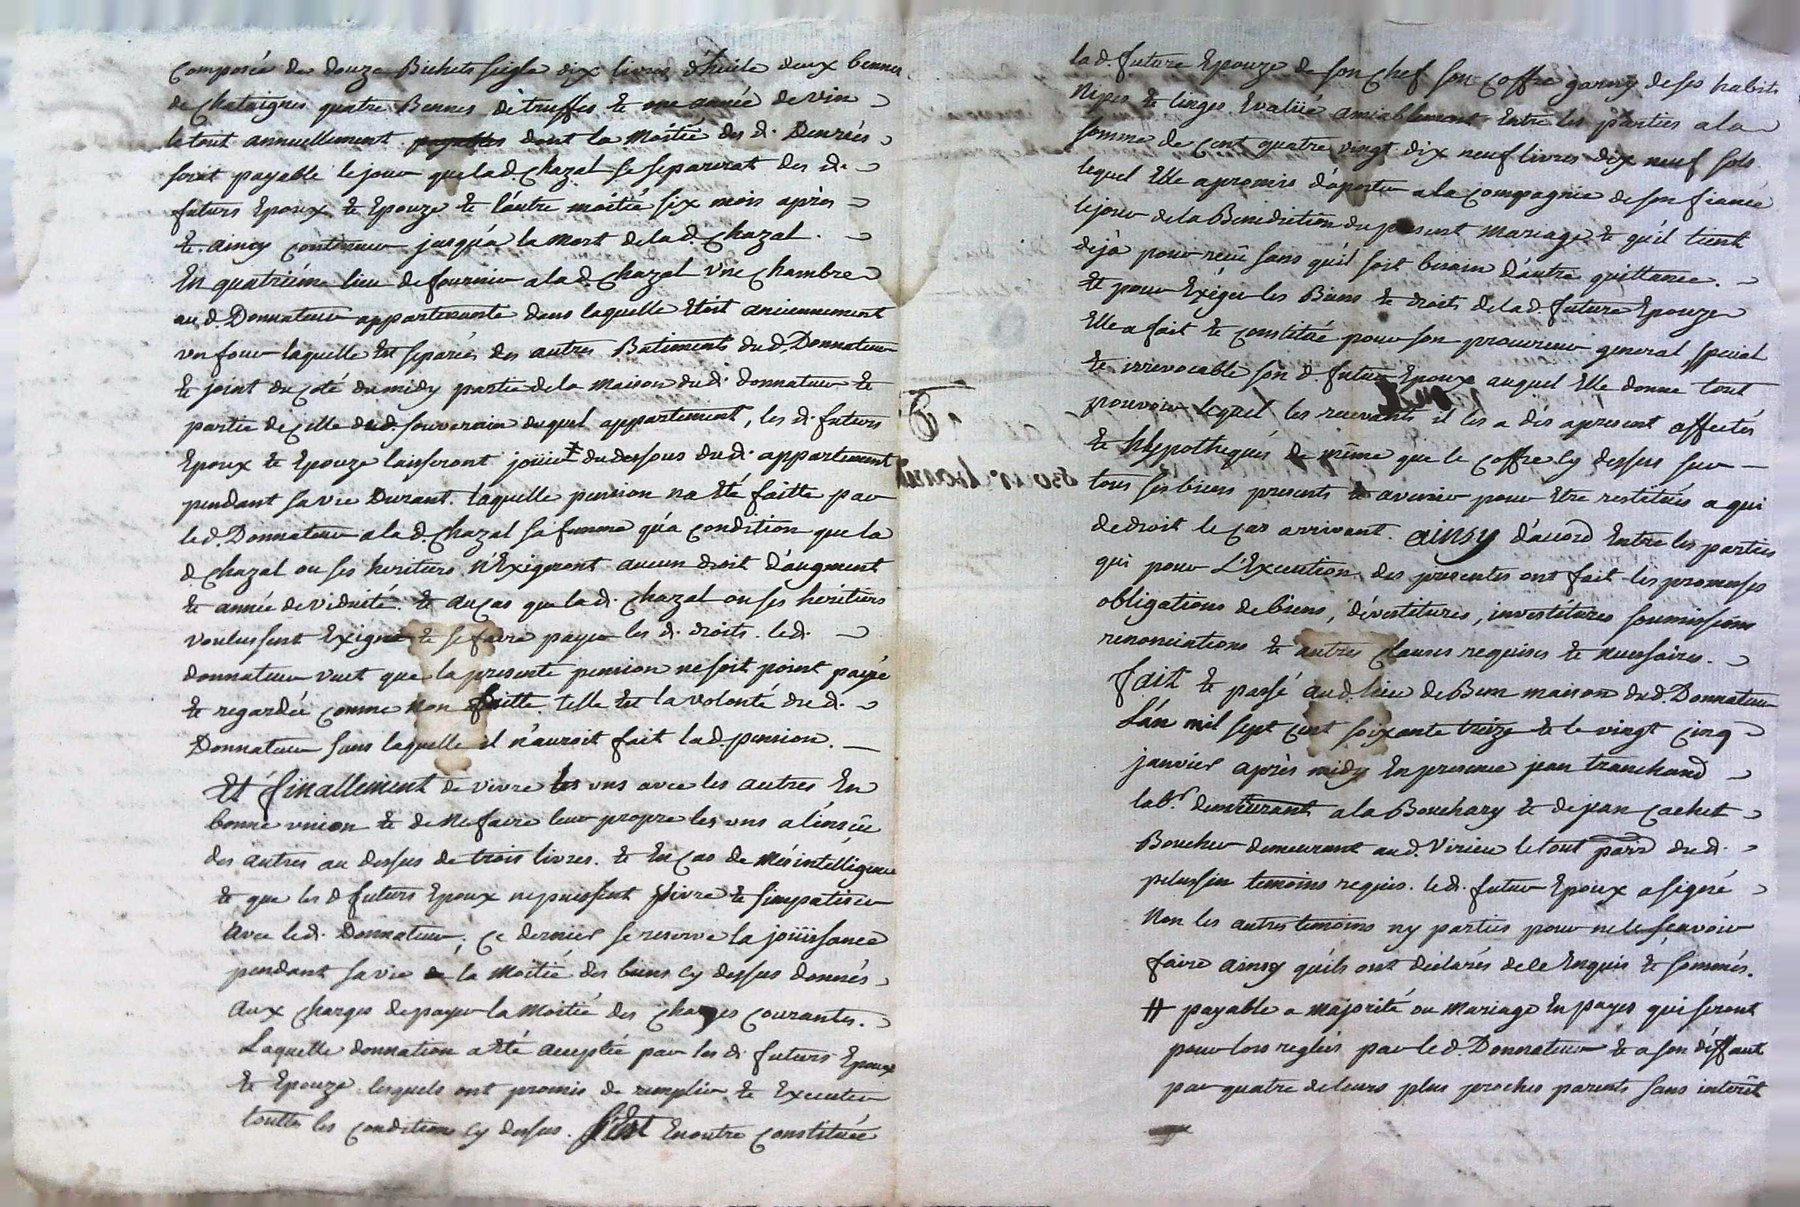 Composée de douze Bichets seigle dix livres d'huile deux bennes
de chataignes quatre Bennes de truffes et une année de vin
le tout annuellement payables dont la Moitié des d. Denrées
soit payable le jour que la d. Chazal se separerat des d.
futurs Epoux et Epouze et l'autre moitié six mois après
et ainsy continuer jusqu'a la mort de la d. Chazal.
En quatriéme lieu de fournir a la d. Chazal une chambre
au d. Donnateur appartenante dans laquelle Etoit anciennement
un four laquelle Est separée des autres Batiments du d. Donnateur
et joint du coté du midy partie de la maison du d. donnateur et
partie de celle du d. souverain duquel appartement, les d. futurs
Epoux et Epouze laisseront joüir du dessous du d. appartement
pendant sa vie Durant. laquelle pension n'a Eté faitte par
le d. Donnateur a la d. Chazal sa femme qu'a condition que la
d. Chazal ou ses heritiers n'Exigeront aucun droit d'augment
et année de viduité. et au cas que la d. Chazal ou ses heritiers
voulussent Exiger et se faire payer les d. droits. le d.
donnateur veut que la presente pension ne soit point payée
et regardée comme non faitte, telle Est la volonté du d.
Donnateur sans laquelle il n'auroit fait la d. pension.
Et finallement de vivre les uns avec les autres En
bonne union et de ne faire leur propre les uns a l'insçû
des autres au dessus de trois livres. et En cas de Mésintélligence
et que les d. futurs Epoux ne puissent vivre et simpatiser
Avec le d. Donnateur, Ce dernier se reserve la joüissance
pendant sa vie de la Moitié des biens cy dessus donnés
aux charges de payer la Moitié des charges courantes.
Laquelle donnation a Eté acceptée par les d. futurs Epoux
et Epouze lesquels ont promis de remplir et Executer
touttes les conditions cy dessus. S'est Enoutre constituée
la d. future Epouze de son chef son coffre garny de ses habits
Nipes et linges Evalüé amiablement Entre les parties a la
somme de cent quatre vingt dix neuf livres dix neuf sols
lequel Elle a promis d'aporter a la compagnie de son fiancé
le jour de la Bénédiction du present Mariage et qu'il tient
déjà pour reçû sans qu'il soit besoin d'autre quittance.
et pour Exiger les Biens et droits de la d. future Epouze
Elle a fait et constitué pour son procureur general special
et irrevocable son d. futur Epoux auquel Elle donne tout
pouvoir lequel les recevants il les a dès apresent affectés
et hypothequés de même que le coffre cy dessus sur
tous ses biens presents et avenir pour Etre restitués a qui
de droit le cas arrivant. Ainsy d'accord Entre les parties
qui pour L'Execution des presentes ont fait les promesses
obligations de biens, dévestitures, investitures soumissions
renonciations et autres clauses requises et necessaires.
Fait et passé au d. lieu de Beun maison du d. Donnateur
L'an mil sept cent soixante treize et le vingt cinq
janvier après midy En presence jean tranchand
lab.r demeurant a la Bouchary et de jean Cachet
Boucher demeurant au d. Virieu le tout parr. du d.
pelussin temoins requis. le d. futur Epoux a signé
Non les autres temoins ny parties pour ne le sçavoir
faire ainsy qu'ils ont déclarés de ce Enquis et sommés.
# payable a Majorité ou Mariage En payes qui seront
pour lors reglées par le d. Donnateur et a son déffaut
par quatre de leurs plus proches parents sans interêt